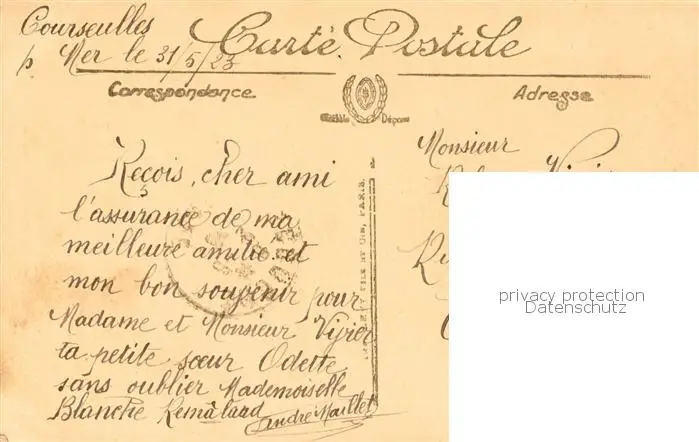 Courseulles
s/ Mer le 31/5/23
Carte Postale
Correspondance
Adresse
Modèle Déposé
Monsieur
Reçois, cher ami
l'assurance de ma
meilleure amitié et
mon bon souvenir pour
Madame et Monsieur Vigier
ta petite sœur Odette
sans oublier Mademoiselle
Blanche Remâlard
André Maillet
privacy protection
Datenschutz